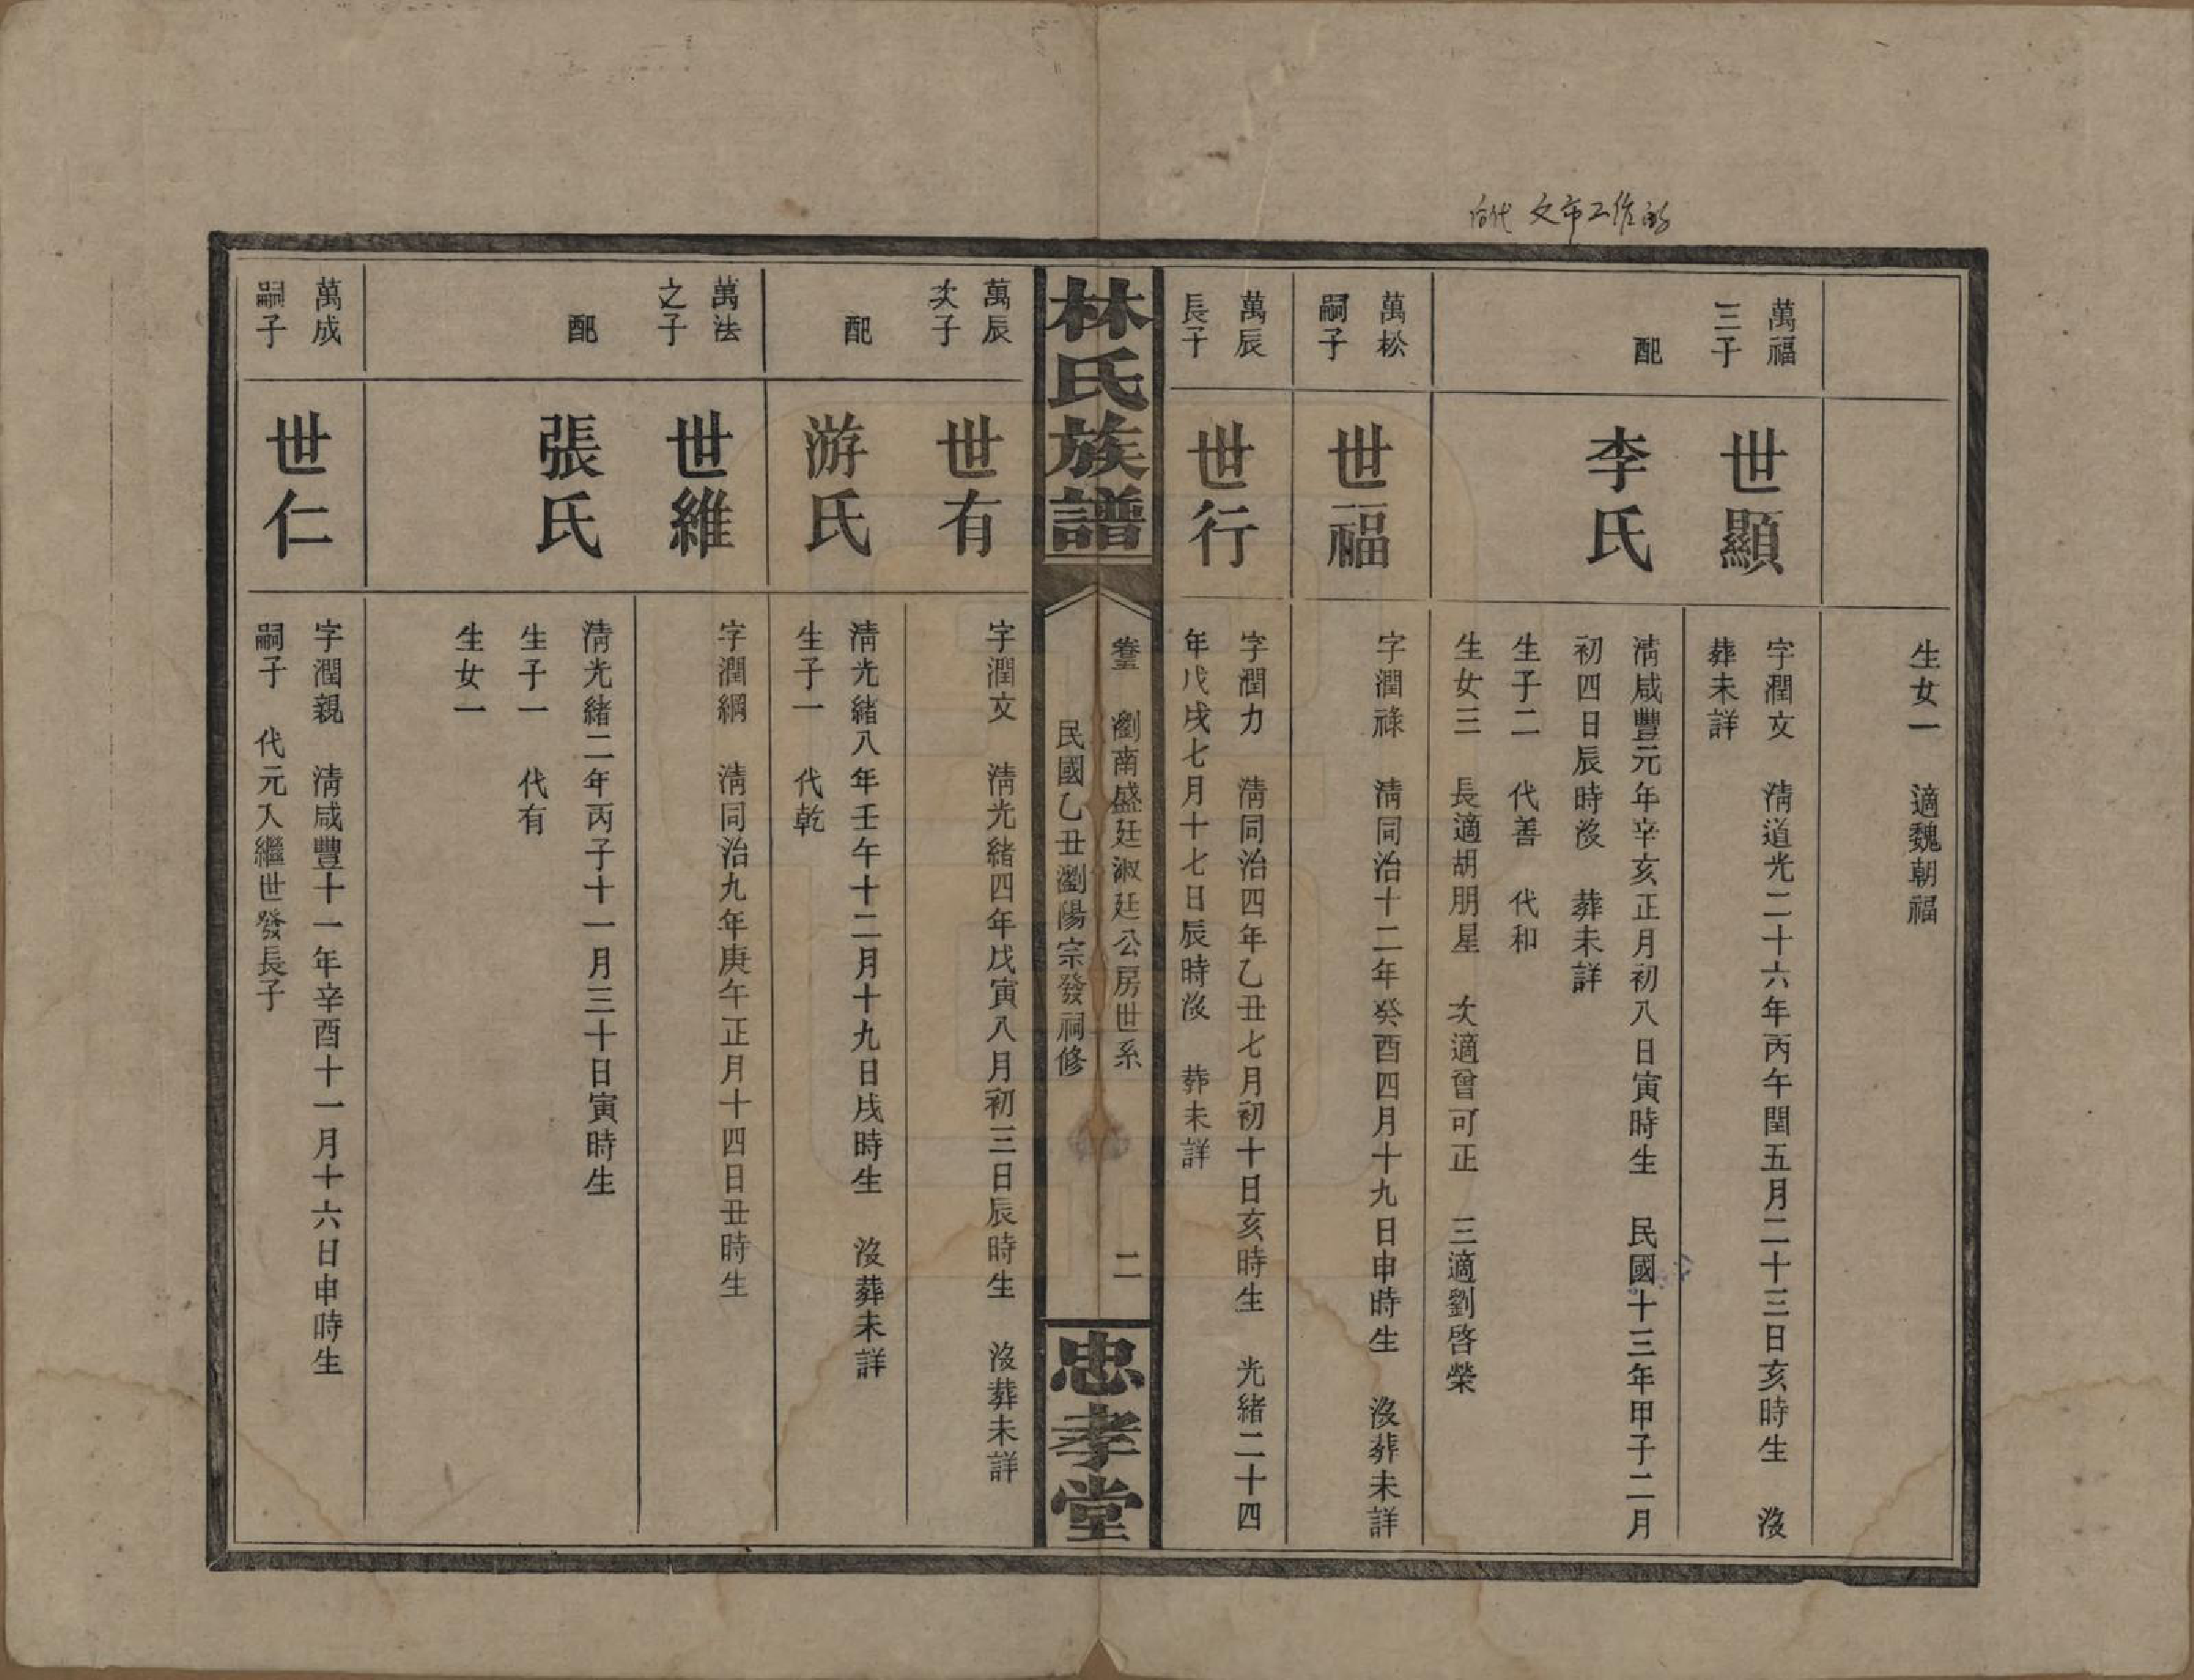 文市工作的
生女一　適魏朝福
萬福
三子
世顯
字潤文　清道光二十六年丙午閏五月二十三日亥時生　沒
葬未詳
配
李氏
清咸豐元年辛亥正月初八日寅時生　民國十三年甲子二月
初四日辰時沒　葬未詳
生子二　代善　代和
生女三　長適胡朋星　次適曾可正　三適劉啓榮
萬松
嗣子
世福
字潤祿　清同治十二年癸酉四月十九日申時生　沒葬未詳
萬辰
長子
世行
字潤力　清同治四年乙丑七月初十日亥時生　光緒二十四
年戊戌七月十七日辰時沒　葬未詳
林氏族譜
卷　瀏南盛廷淑廷公房世系　二
民國乙丑瀏陽宗發祠修
忠孝堂
萬辰
次子
世有
字潤文　清光緒四年戊寅八月初三日辰時生　沒葬未詳
配
游氏
清光緒八年壬午十二月十九日戌時生　沒葬未詳
生子一　代乾
萬法
之子
世維
字潤綱　清同治九年庚午正月十四日丑時生
配
張氏
清光緒二年丙子十一月三十日寅時生
生子一　代有
生女一
萬成
嗣子
世仁
字潤親　清咸豐十一年辛酉十一月十六日申時生
嗣子　代元入繼世發長子